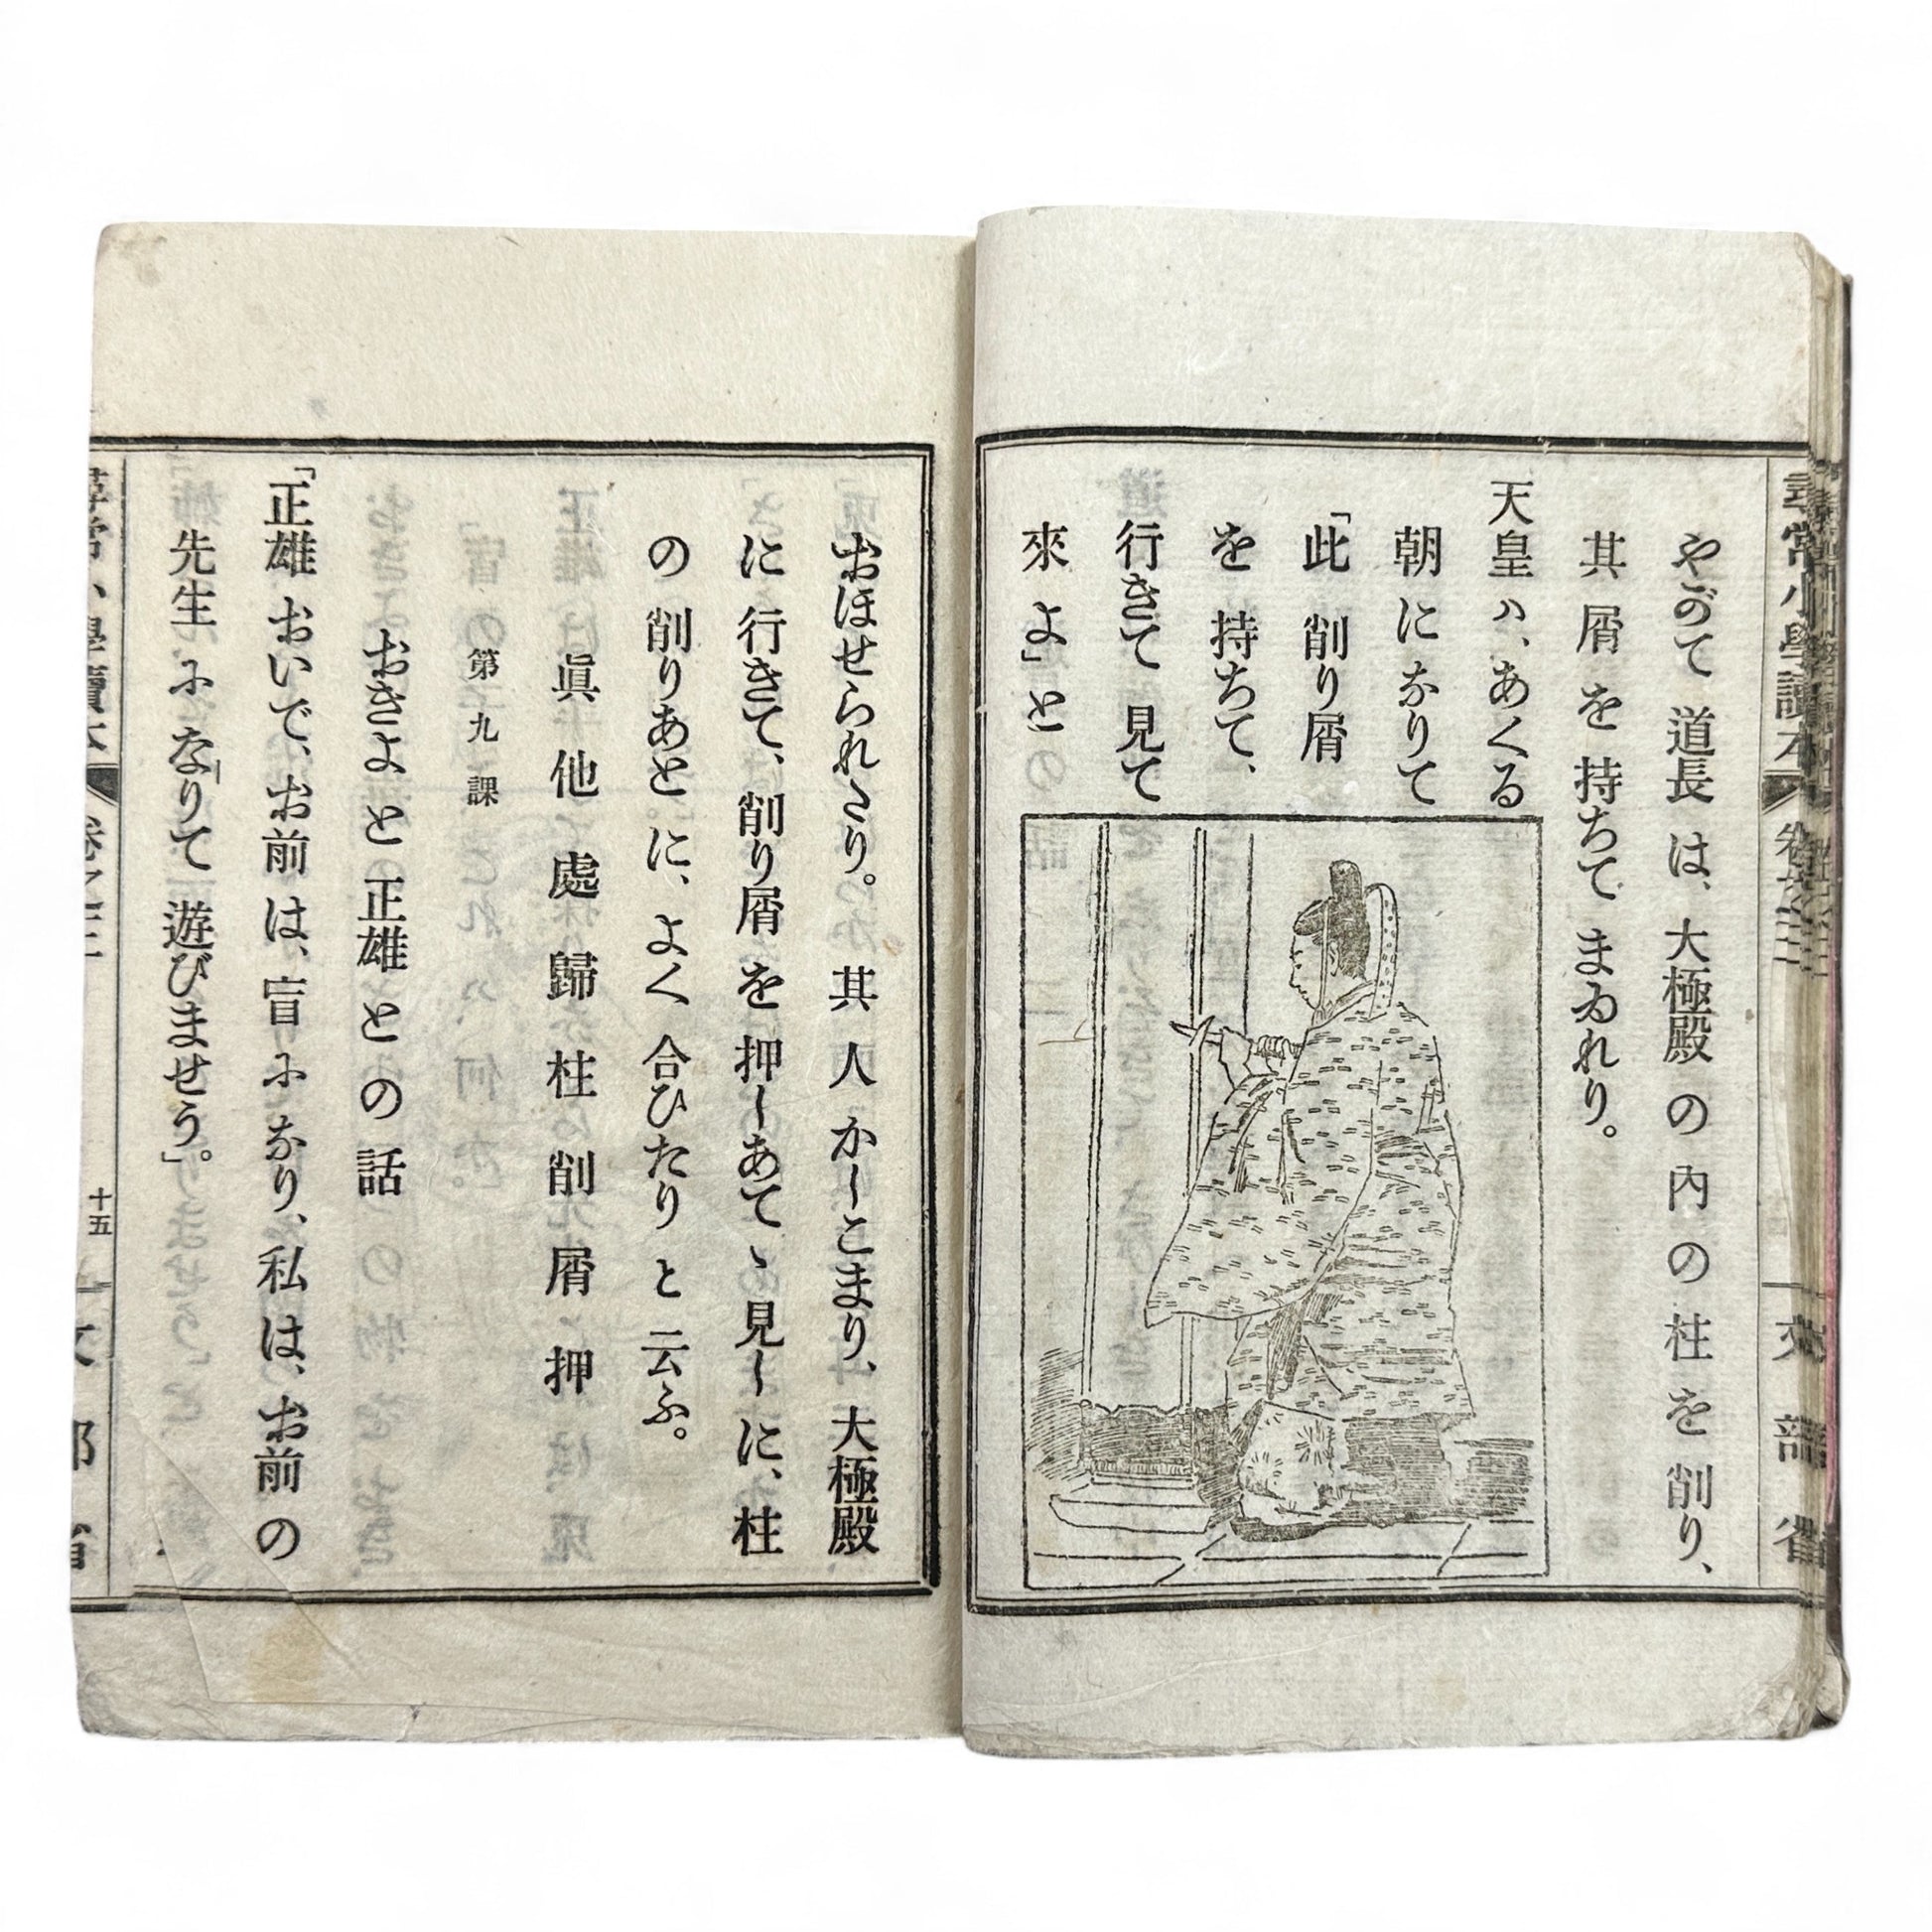 尋常小學讀本 卷之三 文部省
やがて 道長 は、大極殿 の 內 の 柱 を 削り、
其 屑 を 持ちて まゐれり。
天皇 ハ、あくる
朝 に なりて
「此 削り屑
を 持ちて、
行きて 見て
來 よ」と
おほせられたり。 其 人 かしこまり、大極殿
に 行きて、削り屑 を 押しあてゝ 見し に、柱
の 削りあと に、よく 合ひたり と 云ふ。
眞 他 處 歸 柱 削 屑 押
第九課
おきよ と 正雄 と の 話
「正雄 おいで、お前 は、盲 に なり、私 は、お前 の
先生 に なりて 遊びませう」。
十五